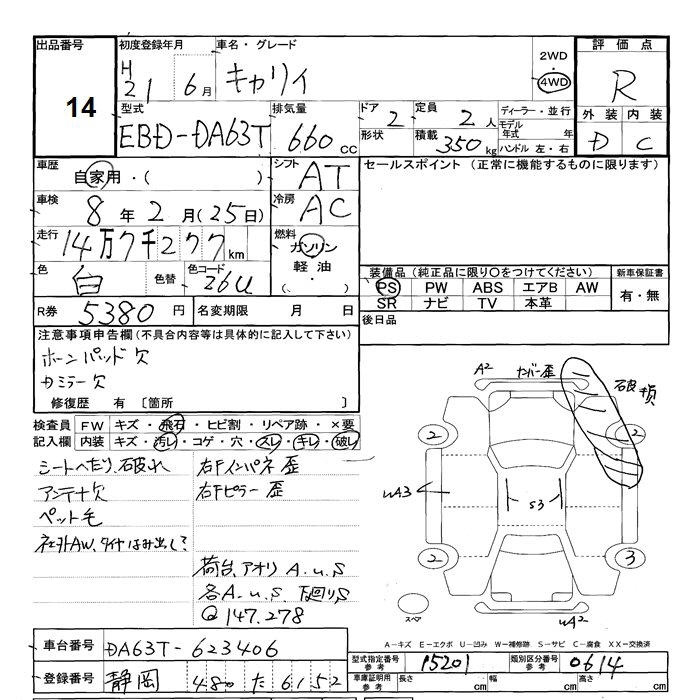 出品番号 14
初度登録年月 H21 6月
車名・グレード キャリイ
2WD・4WD
評価点 R
外装 D 内装 C
型式 EBD-DA63T
排気量 660cc
ドア 2 形状
定員 2人
積載 350kg
ディーラー・並行
モデル年式 年
ハンドル 左・右
車歴 自家用・( )
シフト AT
セールスポイント (正常に機能するものに限ります)
車検 8年2月(25日)
冷房 AC
走行 14万7千277km
燃料 ガソリン 軽油・( )
色 白 色替 色コード 26U
装備品(純正品に限り○をつけてください)
PS PW ABS エアB AW
SR ナビ TV 本革
新車保証書 有・無
R券 5380円
名変期限 月 日
後日品
注意事項申告欄(不具合内容等は具体的に記入して下さい)
ホーンパッド欠
カミラー欠
修復歴 有 〔箇所 〕
検査員記入欄
FW キズ・飛石・ヒビ割・リペア跡・×要
内装 キズ・汚レ・コゲ・穴・スレ・キレ・破レ
シートへたり、破れ
アンテナ欠
ペット毛
社外AW、タイヤはみ出し?
右Fインパネ歪
右Fピラー歪
荷台、アオリ A.U.S
各A.U.S 下廻りS
Q 147.278
A2 ナンバー歪 破損
2 2
UA3 S3
2 3
スペア UA2
A-キズ E-エクボ U-凹み W-補修跡 S-サビ C-腐食 XX-交換済
車台番号 DA63T-623406
型式指定番号 参考 15201
類別区分番号 参考 0614
登録番号 静岡 480 た 6152
車庫証明用 参考 長さ cm 幅 cm 高さ cm